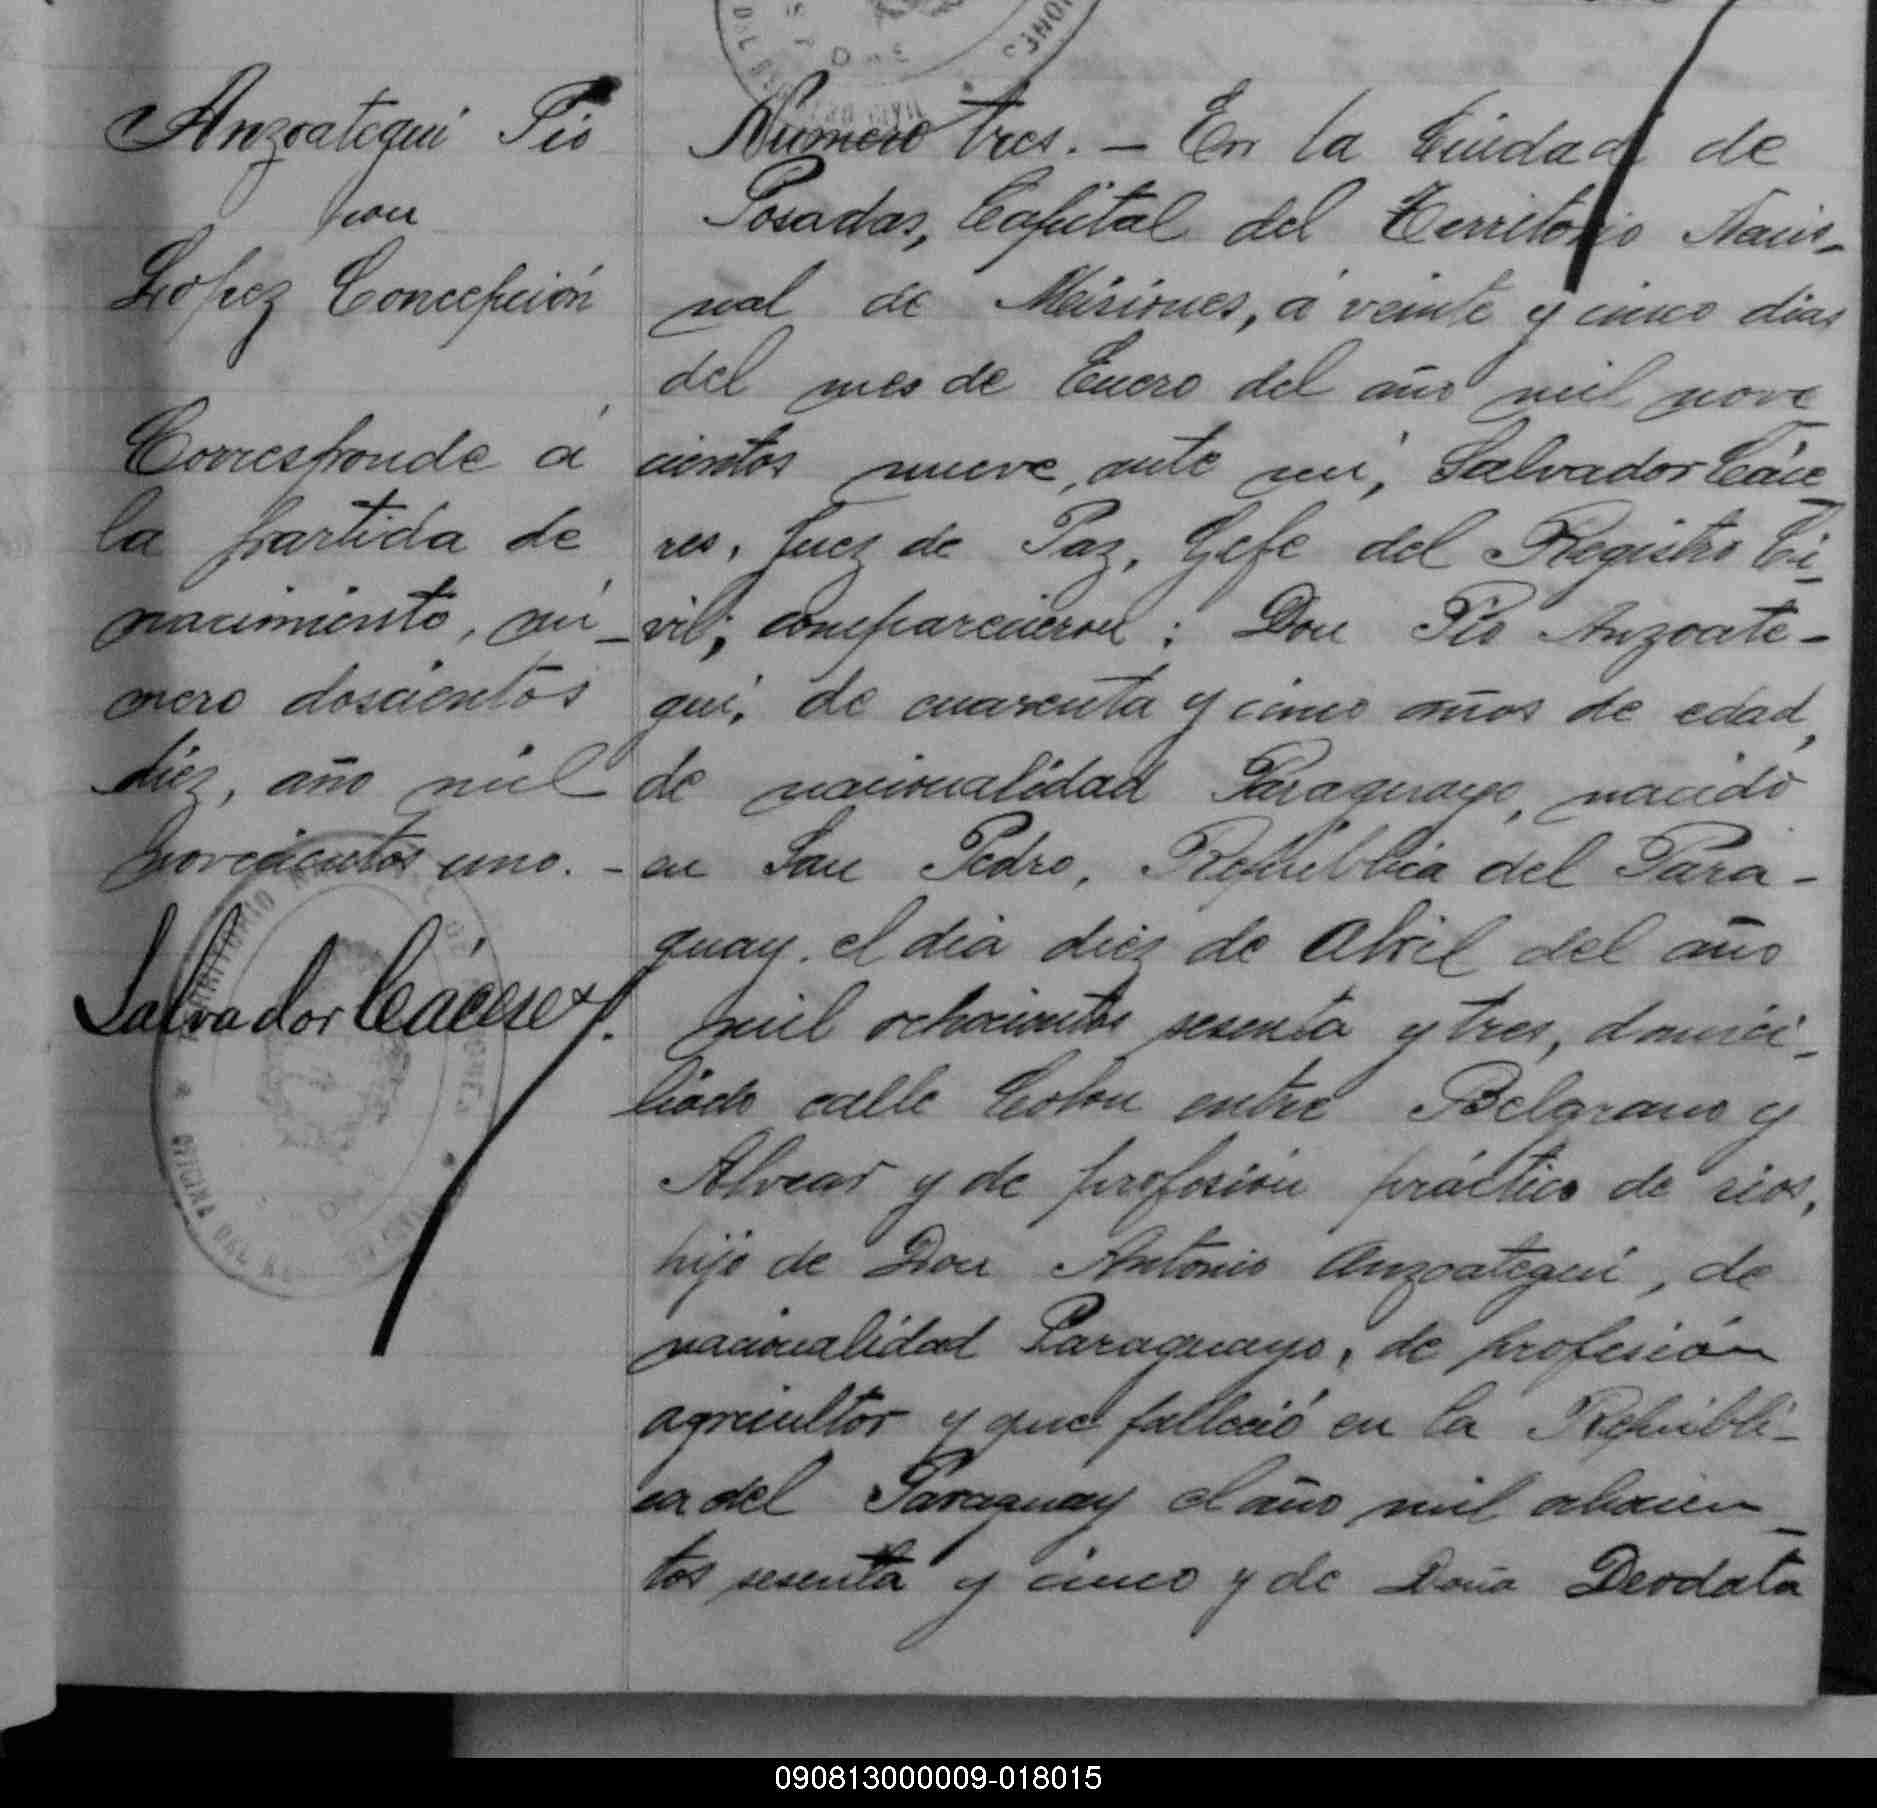 Anzoategui Pio
con
Lopez Concepción
Corresponde á
la partida de
nacimiento, nú-
mero doscientos
diez, año mil
novecientos uno. -
Salvador Cáceres
Número tres. - En la Ciudad de
Posadas, Capital del Territorio Nacio-
nal de Misiones, á veinte y cinco dias
del mes de Enero del año mil nove
cientos nueve, ante mi, Salvador Cáce-
res, Juez de Paz, Gefe del Registro Ci-
vil; comparecieron: Don Pio Anzoate-
gui, de cuarenta y cinco años de edad,
de nacionalidad Paraguayo, nacido
en San Pedro, República del Para-
guay, el dia diez de Abril del año
mil ochocientos sesenta y tres, domici-
liado calle Colon entre Belgrano y
Alvear y de profesión práctico de rios,
hijo de Don Antonio Anzoategui, de
nacionalidad Paraguayo, de profesión
agricultor y que falleció en la Repúbli-
ca del Paraguay el año mil ochocien-
tos sesenta y cinco y de Doña Deodata
090813000009-018015